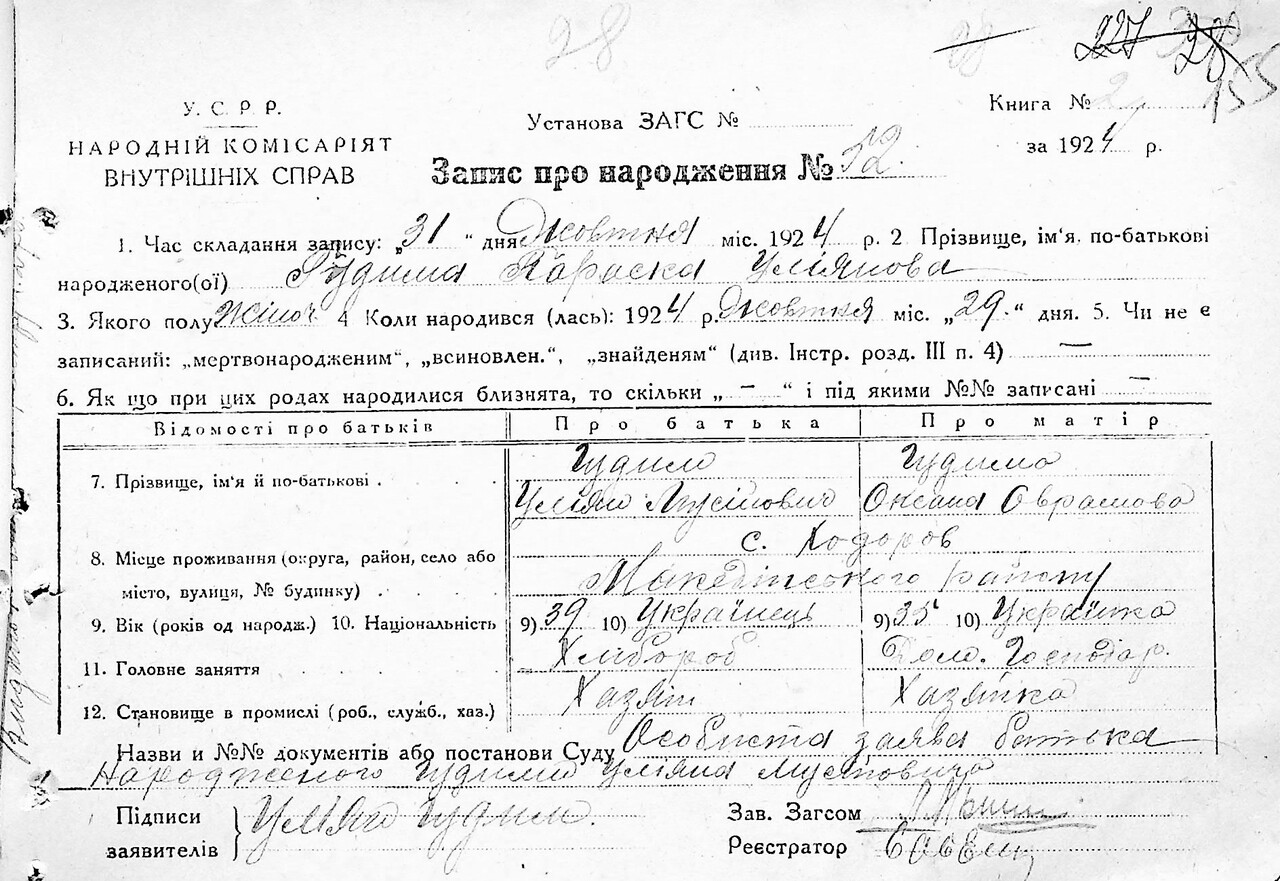 28
28 227 28
155
У. С. Р. Р.
НАРОДНІЙ КОМІСАРІЯТ
ВНУТРІШНІХ СПРАВ
Установа ЗАГС №
Книга № 2
за 1924 р.
Запис про народження № 52.
1. Час складання запису: „31 “ дня Жовтня міс. 1924 р. 2 Прізвище, ім'я, по-батькові
народженого(ої) Гудима Параска Улянова
3. Якого полу Жіноч 4 Коли народився (лась): 1924 р. Жовтня міс. „29.“ дня. 5. Чи не є
записаний: „мертвонародженим“, „всиновлен.“, „знайденям“ (див. Інстр. розд. III п. 4) —
6. Як що при цих родах народилися близнята, то скільки „ – “ і під якими №№ записані —
Відомості про батьків Про батька Про матір
7. Прізвище, ім'я й по-батькові . Гудим Гудима
Улян Мусійович Оксана Оврамова
8. Місце проживання (округа, район, село або с. Ходоров
місто, вулиця, № будинку) . Македінського району
9. Вік (років од народж.) 10. Національність 9) 39 10) Українець 9) 35 10) Українка
11. Головне заняття Хлібороб Дом. Господар.
12. Становище в промислі (роб., служб., хаз.) Хазяїн Хазяйка
Назви и №№ документів або постанови Суду Особиста заява батька
Народженого Гудими Уляна Мусійовича
Підписи
заявителів Улян Гудим.
Зав. Загсом
Реєстратор